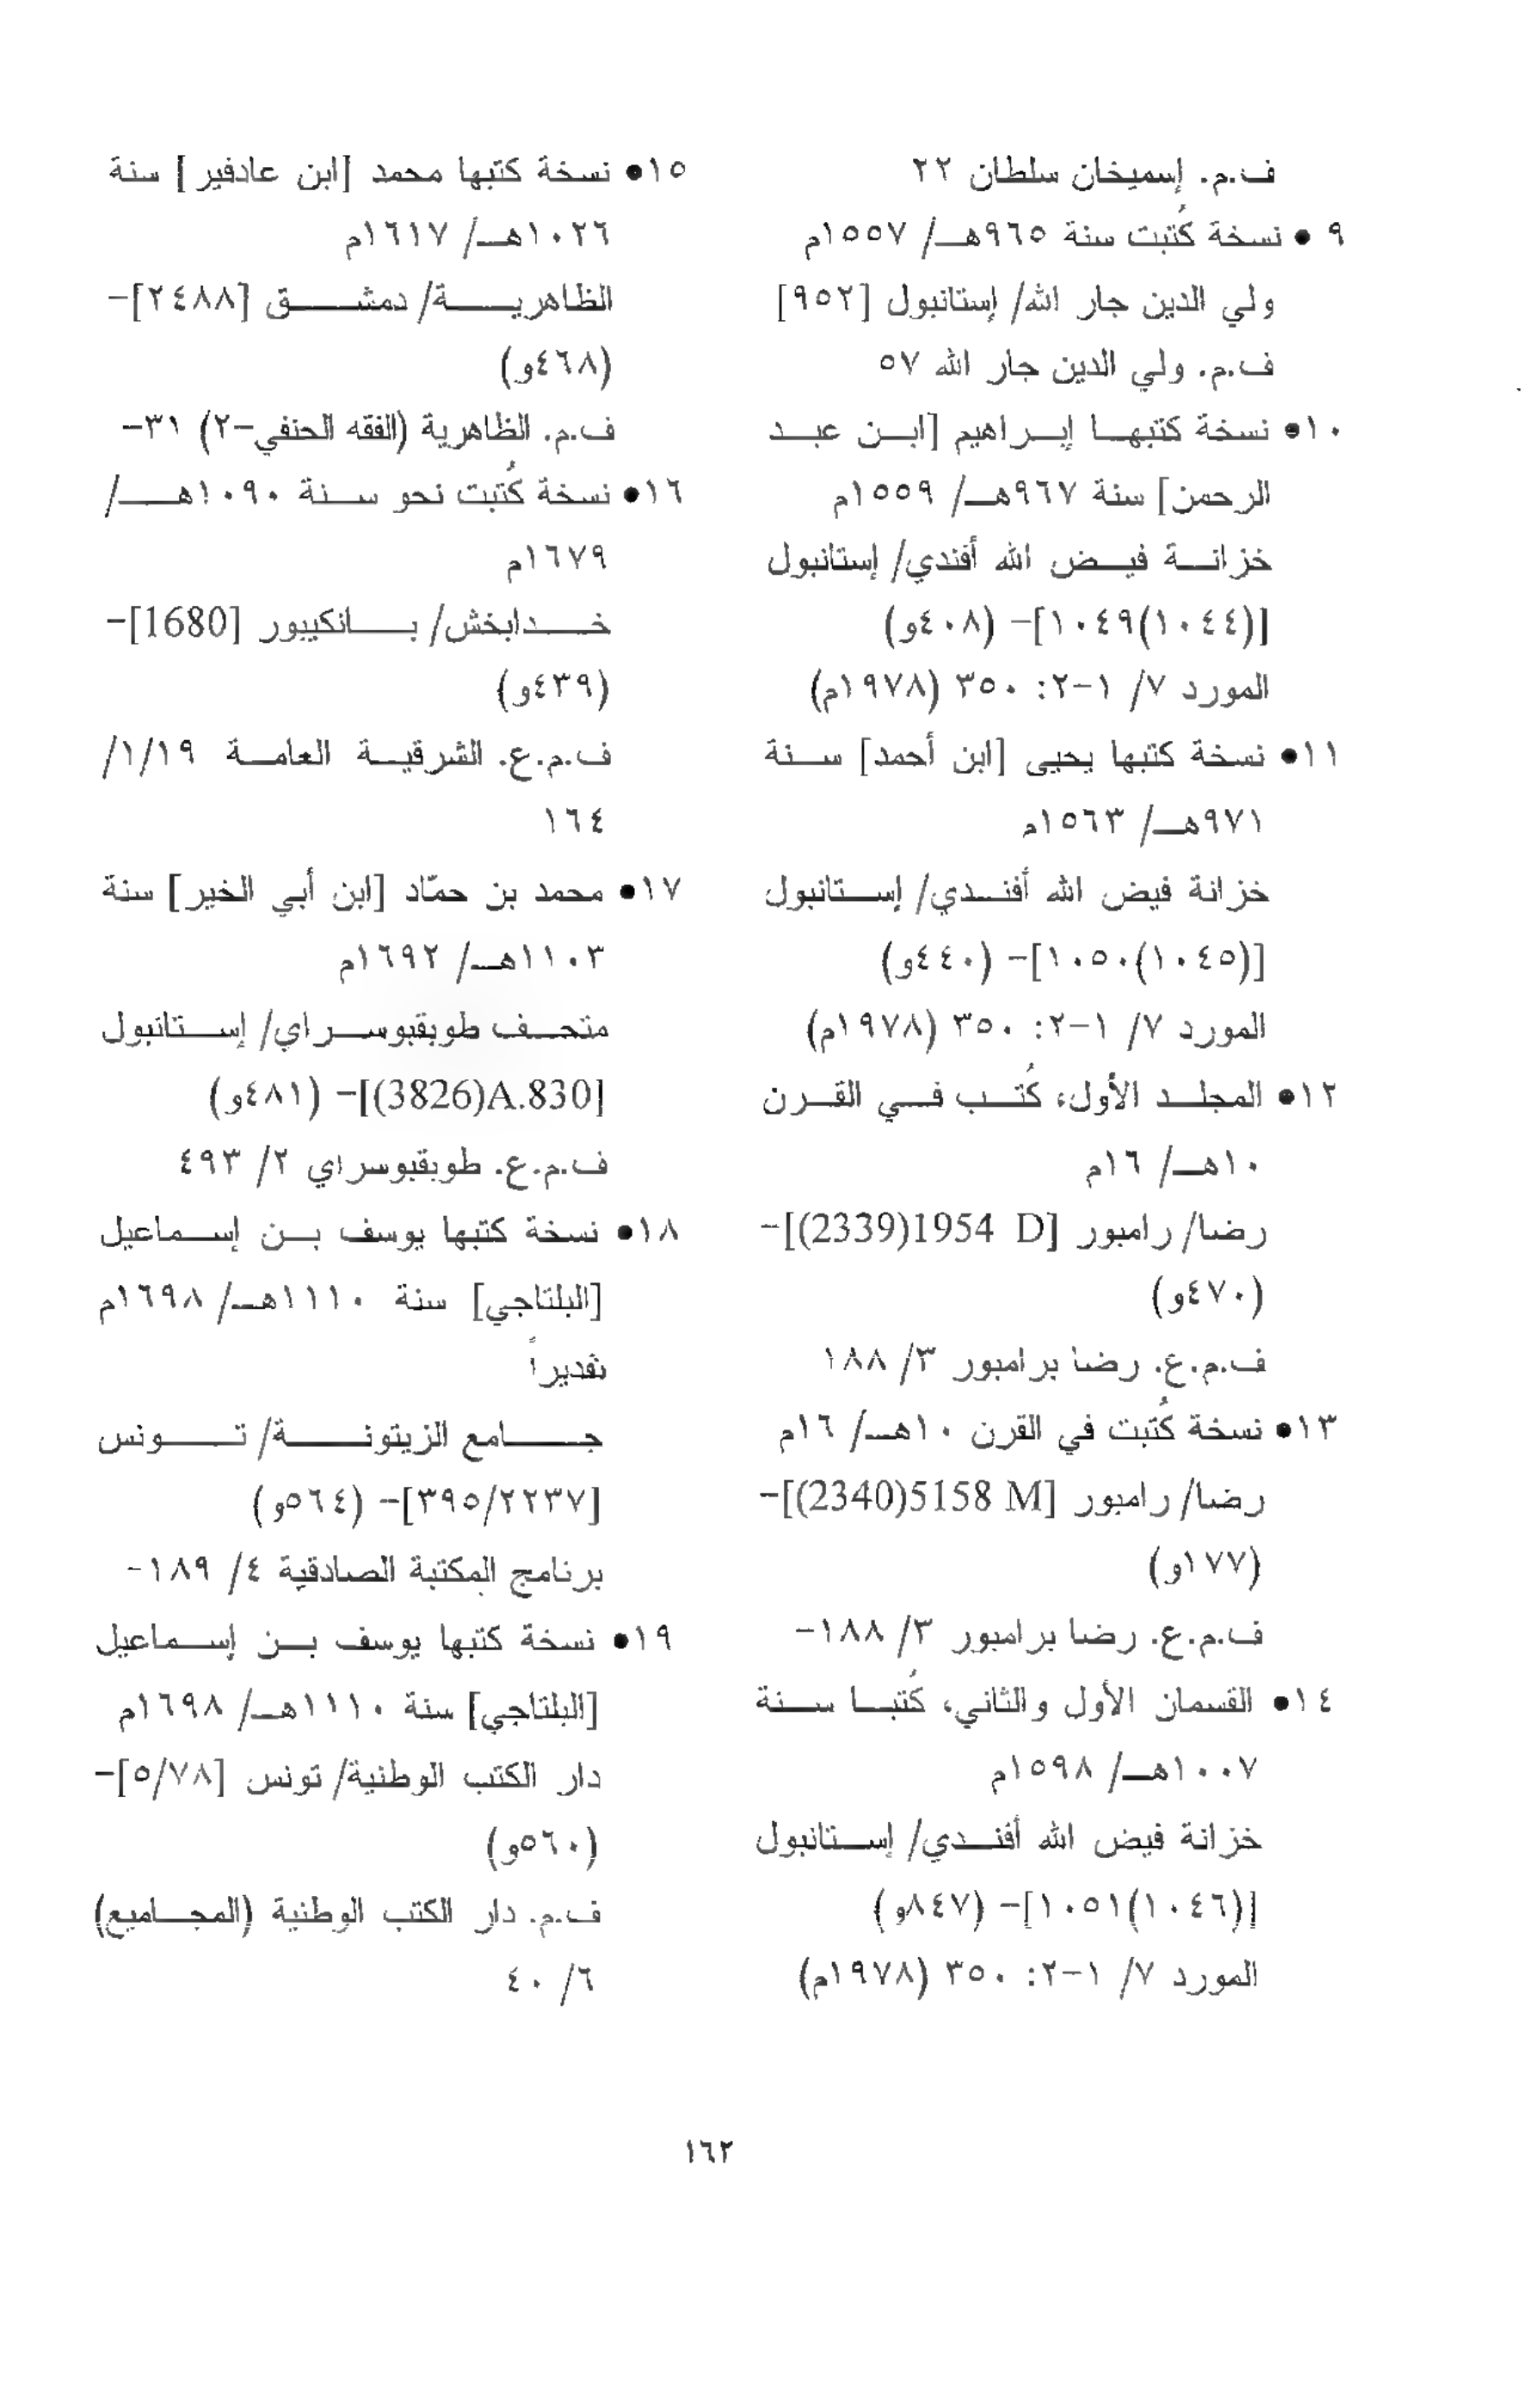 ف.م. إسميخان سلطان ٢٢
٩ • نسخة كُتبت سنة ٩٦٥هـ/ ١٥٥٧م
ولي الدين جار الله/ إستانبول [٩٥٢]
ف.م. ولي الدين جار الله ٥٧
١٠• نسخة كتبها إبراهيم [ابن عبد
الرحمن] سنة ٩٦٧هـ/ ١٥٥٩م
خزانة فيض الله أفندي/ إستانبول
[(١٠٤٤)١٠٤٩]- (٤٠٨و)
المورد ٧/ ١-٢: ٣٥٠ (١٩٧٨م)
١١• نسخة كتبها يحيى [ابن أحمد] سنة
٩٧١هـ/ ١٥٦٣م
خزانة فيض الله أفندي/ إستانبول
[(١٠٤٥)١٠٥٠]- (٤٤٠و)
المورد ٧/ ١-٢: ٣٥٠ (١٩٧٨م)
١٢• المجلد الأول، كُتب في القرن
١٠هـ/ ١٦م
رضا/ رامبور [1954 D(2339)]-
(٤٧٠و)
ف.م.ع. رضا برامبور ٣/ ١٨٨
١٣• نسخة كُتبت في القرن ١٠هـ/ ١٦م
رضا/ رامبور [5158 M(2340)]-
(١٧٧و)
ف.م.ع. رضا برامبور ٣/ ١٨٨-
١٤• القسمان الأول والثاني، كُتبا سنة
١٠٠٧هـ/ ١٥٩٨م
خزانة فيض الله أفندي/ إستانبول
[(١٠٤٦)١٠٥١]- (٨٤٧و)
المورد ٧/ ١-٢: ٣٥٠ (١٩٧٨م)
١٥• نسخة كتبها محمد [ابن عادفير] سنة
١٠٢٦هـ/ ١٦١٧م
الظاهرية/ دمشق [٢٤٨٨]-
(٤٦٨و)
ف.م. الظاهرية (الفقه الحنفي-٢) ٣١-
١٦• نسخة كُتبت نحو سنة ١٠٩٠هـ/
١٦٧٩م
خدابخش/ بانكيبور [1680]-
(٤٣٩و)
ف.م.ع. الشرقية العامة ١/١٩/
١٦٤
١٧• محمد بن حمّاد [ابن أبي الخير] سنة
١١٠٣هـ/ ١٦٩٢م
متحف طوبقبوسراي/ إستانبول
[A.830(3826)]- (٤٨١و)
ف.م.ع. طوبقبوسراي ٢/ ٤٩٣
١٨• نسخة كتبها يوسف بن إسماعيل
[البلتاجي] سنة ١١١٠هـ/ ١٦٩٨م
تقديراً
جامع الزيتونة/ تونس
[٣٩٥/٢٢٣٧]- (٥٦٤و)
برنامج المكتبة الصادقية ٤/ ١٨٩-
١٩• نسخة كتبها يوسف بن إسماعيل
[البلتاجي] سنة ١١١٠هـ/ ١٦٩٨م
دار الكتب الوطنية/ تونس [٥/٧٨]-
(٥٦٠و)
ف.م. دار الكتب الوطنية (المجاميع)
٦/ ٤٠
١٦٢